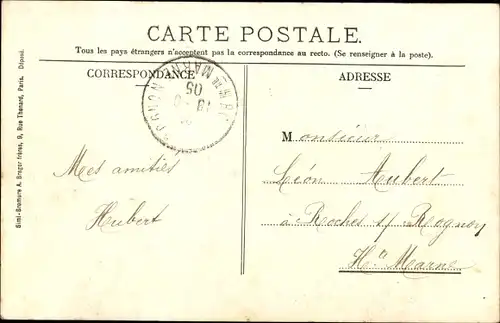 CARTE POSTALE.
Tous les pays étrangers n'acceptent pas la correspondance au recto. (Se renseigner à la poste).
CORRESPONDANCE
ADRESSE
Simi-Bromure A. Breger frères, 9, Rue Thenard, Paris. Déposé.
HTE MARNE
05
Mes amitiés
Hubert
Monsieur
Léon Aubert
à Roches s/ Rognon
Hte Marne